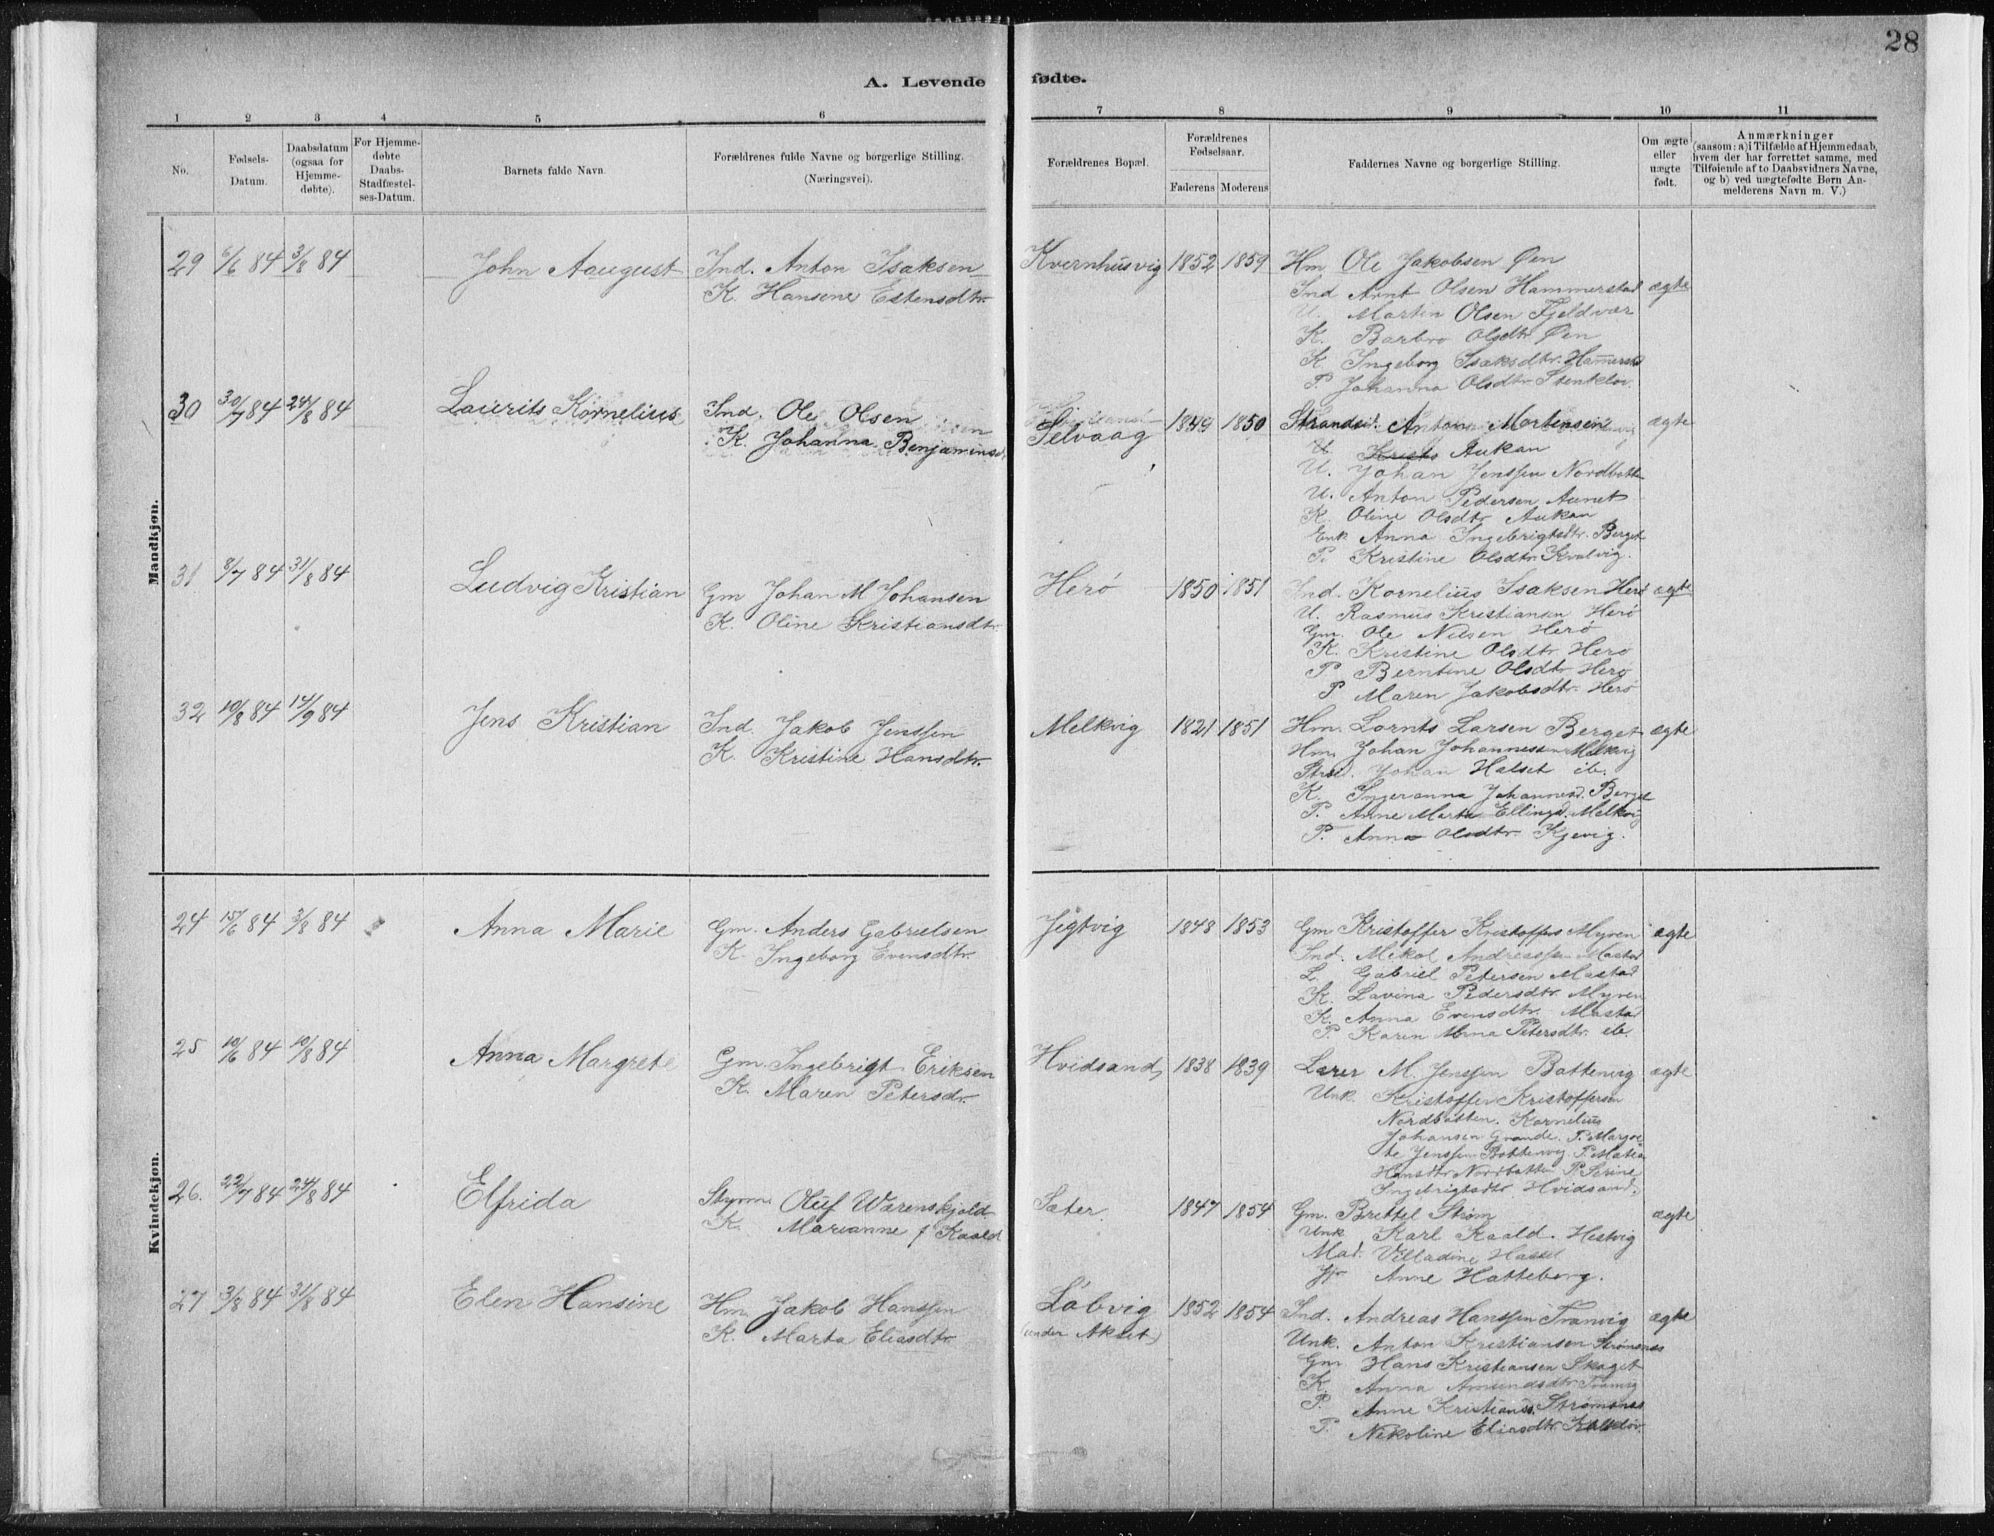 28
A. Levende fødte.
1 2 3 4 5 6 7 8 9 10 11
No.
Fødsels-Datum.
Daabsdatum (ogsaa for Hjemme-døbte).
For Hjemme-døbte Daabs-Stadfæstel-ses-Datum.
Barnets fulde Navn.
Forældrenes fulde Navne og borgerlige Stilling.
(Næringsvei).
Forældrenes Bopæl.
Forældrenes Fødselsaar.
Faderens Moderens
Faddernes Navne og borgerlige Stilling.
Om ægte eller uægte født.
Anmærkninger
(saasom: a) i Tilfælde af Hjemmedaab,
hvem der har forrettet samme, med
Tilføiende af to Daabsvidners Navne,
og b) ved uægtefødte Børn An-
melderens Navn m. V.)
Mandkjøn.
29 6/6 84 3/8 84 John Aaugust Ind. Anton Isaksen Kvernhusvig 1852 1859 Hm Ole Jakobsen Øen
K. Hansene Estensdtr. Ind Arnt Olsen Hammerstad ægte
U. Marten Olsen Fjeldvær
K. Barbro Olsdtr Øen
K Ingeborg Isaksdtr. Hammerstd
P. Johanna Olsdtr Stenklov.
30 30/7 84 24/8 84 Laurits Kornelius Ind. Ole Olsen Selvaag 1849 1850 Strandsid. Anton Mortensen ægte
K. Johanna Benjaminsd. U Aukan
U. Johan Jenssen Nordbotte
U. Anton Pedersen Aunet
K. Oline Olsdtr Aukan
Enk Anna Ingebrigtsdtr. Berget
P. Kristine Olsdtr. Kvalvig.
31 8/7 84 31/8 84 Ludvig Kristian Gm Johan M Johansen Herø 1850 1851 Ind. Kornelius Isaksen Herø ægte
K. Oline Kristiansdtr. U. Rasmus Kristiansen Herø
Gm. Ole Nilsen Herø
K. Kristine Olsdtr Herø
P Berntine Olsdtr Herø
P Maren Jakobsdtr. Herø
32 10/8 84 14/9 84 Jens Kristian Ind. Jakob Jenssen Melkvig 1821 1851 Hm. Lornts Larsen Berget ægte
K. Kristine Hansdtr. Hm. Johan Johannessen Melkvig
Johan Halset ib.
K. Ingeranna Johannesd. Berget
P. Anne Marta Ellingsd. Melkvig
P. Anna Olsdtr. Kjevig.
Kvindekjøn.
24 15/6 84 3/8 84 Anna Marie Gm. Anders Gabrielsen Jegtvig 1848 1853 Gm Kristoffer Kristoffers Myren ægte
K. Ingeborg Evensdtr. Ind. Mikal Andreassen Mastad
L. Gabriel Petersen Mastad
K. Lavina Pedersdtr. Myren
K. Anna Evensdtr. Mastad
P. Karen Anna Petersdtr. ib.
25 10/6 84 10/8 84 Anna Margrete Gm. Ingebrigt Eriksen Hvidsand, 1838 1839 Lærer M. Jenssen Battenvig ægte
K. Maren Petersdr. Unk. Kristoffer Kristoffersen
Nordbotten. Kornelius
Johansen Grande. P. Margre-
te Jenssen Bottenvig. P. Matia
Hansdtr Nordbotten P. Serine
Ingebrigtsdtr. Hvidsand.
26. 22/7 84 24/8 84 Elfrida Styrm Oluf Wærenskjold Sæter. 1847 1854 Gm. Brettel Strøm ægte
K. Marianne f Kaald Unk Karl Kaald. Hestvig
Mad. Villadine Hassel
Jfr Anne Hatteberg.
27 3/8 84 31/8 84 Elen Hansine Hm Jakob Hanssen Løbvig 1852 1854 Ind. Andreas Hanssen Tranvig ægte
K. Marta Eliasdtr. (under Akset) Unk. Anton Kristiansen Strømsnes
Gm Hans Kristiansen Skaget
K. Anna Amundsdtr Tranvig
P. Anne Kristiansd. Strømsnes
P. Nikoline Eliasdtr.